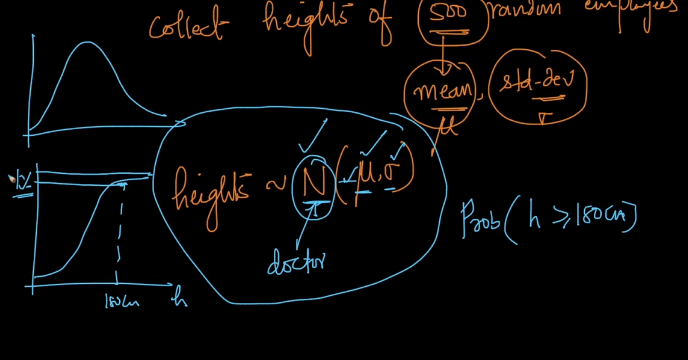 collect heights of 500 random employees
mean, std-dev
μ σ
heights ~ N(μ, σ)
doctor
Prob(h ≥ 180cm)
180cm h